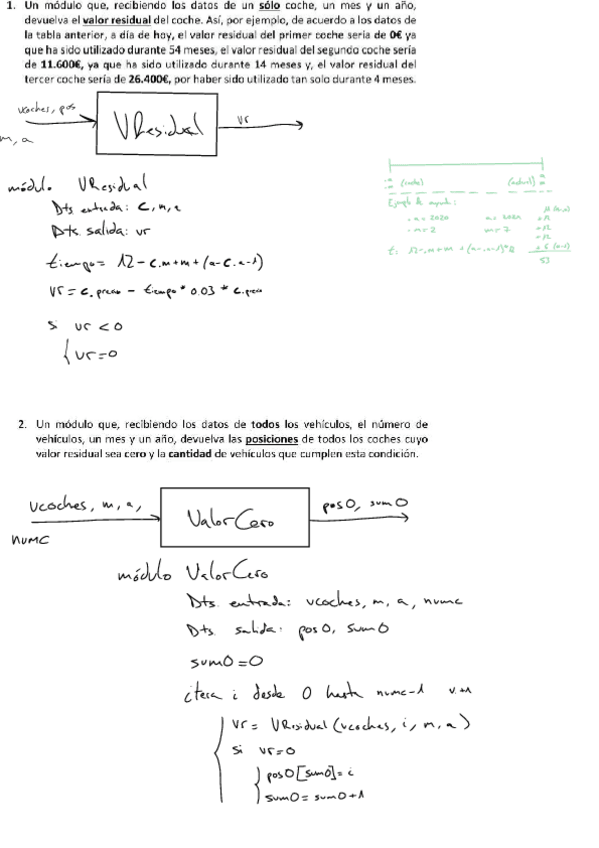 1. Un módulo que, recibiendo los datos de un sólo coche, un mes y un año,
devuelva el valor residual del coche. Así, por ejemplo, de acuerdo a los datos de
la tabla anterior, a día de hoy, el valor residual del primer coche sería de 0€ ya
que ha sido utilizado durante 54 meses, el valor residual del segundo coche sería
de 11.600€, ya que ha sido utilizado durante 14 meses y, el valor residual del
tercer coche sería de 26.400€, por haber sido utilizado tan solo durante 4 meses.
vcoches, pos
m, a
VResidual
vr
módulo VResidual
Dts entrada: c, m, a
Dts. salida: vr
tiempo = 12 - c.m + m + (a - c.a - 1)
vr = c.precio - tiempo * 0.03 * c.precio
si vr < 0
vr = 0
a = 2020
m = 2
m = 7
53
2. Un módulo que, recibiendo los datos de todos los vehículos, el número de
vehículos, un mes y un año, devuelva las posiciones de todos los coches cuyo
valor residual sea cero y la cantidad de vehículos que cumplen esta condición.
vcoches, m, a,
numc
ValorCero
pos0, sum0
módulo ValorCero
Dts. entrada: vcoches, m, a, numc
Dts. salida: pos0, sum0
sum0 = 0
itera i desde 0 hasta numc-1
vr = VResidual (vcoches, i, m, a)
si vr=0
pos0[sum0] = i
sum0 = sum0 + 1